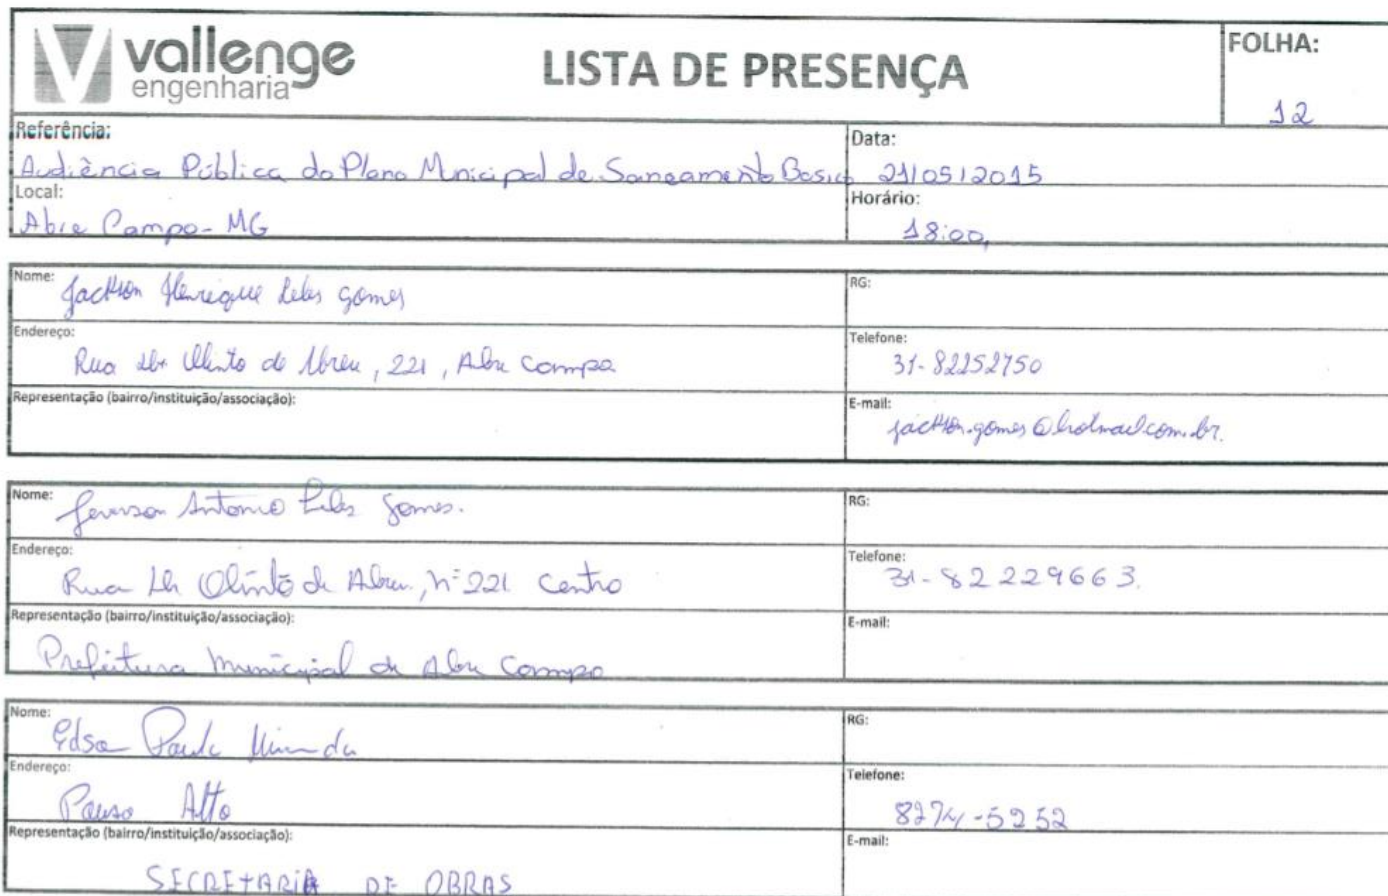 vallenge
engenharia
LISTA DE PRESENÇA
FOLHA:
12
Referência:
Audiència Pública do Plano Municipal de Saneamento Basico
Data:
21/05/2015
Local:
Abre Campo - MG
Horário:
18:00,
Nome: Jackson Henrique Leles gomes
RG:
Endereço:
Rua Dr Olinto de Abreu, 221, Abre Campo
Telefone:
31-82252750
Representação (bairro/instituição/associação):
E-mail:
Nome: Antonio Leles Gomes.
RG:
Endereço:
Rua Dr Olinto de Abreu, nº 221 Centro
Telefone:
31-82229663.
Representação (bairro/instituição/associação):
Prefeitura Municipal de Abre Campo
E-mail:
Nome: Edson Paula Miranda
RG:
Endereço:
Pouso Alto
Telefone:
8274-5252
Representação (bairro/instituição/associação):
SECRETARIA DE OBRAS
E-mail: